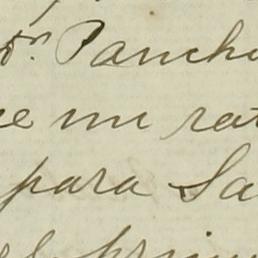 Dn Panch
e un rat
para Sa
el prim